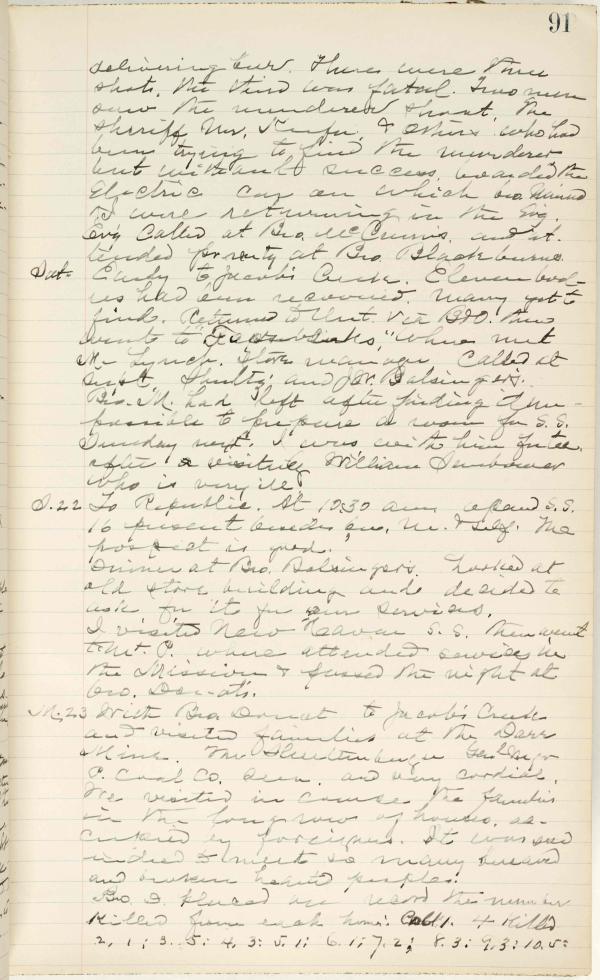 91
delivering . There were three
shots, the third was fatal. Two men
saw the murderer shoot. The
Sheriff Mr. , & others who had
been trying to find the murderer
but without success, boarded the
Electric car on which bro.
& I were returning in the evg.
Ev'g Called at Bro. McCunn's and at-
tended party at Bro. Blackburns
Sat- Early to Jacob's Creek. Eleven bod-
ies had been recovered. Many yet to
find. Returned to Unt. via B&O. Then
went to " " where met
Mr Lynch, Store manager. Called at
Supt. and Jr. Balsinger's.
Bro. M. had left after finding it im-
possible to prepare a room for S.S.
Sunday next. I was with him
after visiting William
who is very ill.
S. 22 To Republic. At 10:30 am opened S.S.
16 present besides bro. M. & self. The
prospect is good.
Dinner at Bro. Balsinger's. Looked at
old store building and decided to
ask for it for our services.
I visited New Haven S.S. then went
to Mt. P. where attended services in
the Mission & passed the night at
bro. Donat's.
M. 23 With Bro. Donat to Jacob's Creek
and visited families at the Darr
Mine. Mr Gen'l Mgr
P. Coal Co. seen and very cordial.
We visited in course the families
in the long row of houses, oc-
cupied by foreigners. It was sad
indeed to meet so many bereaved
and broken hearted people.
Bro. D. placed on record the number
killed from each home. 1. 4 killed
2, 1; 3. 5; 4, 3; 5. 1; 6. 1; 7. 2; 8. 3; 9, 3; 10. 5;